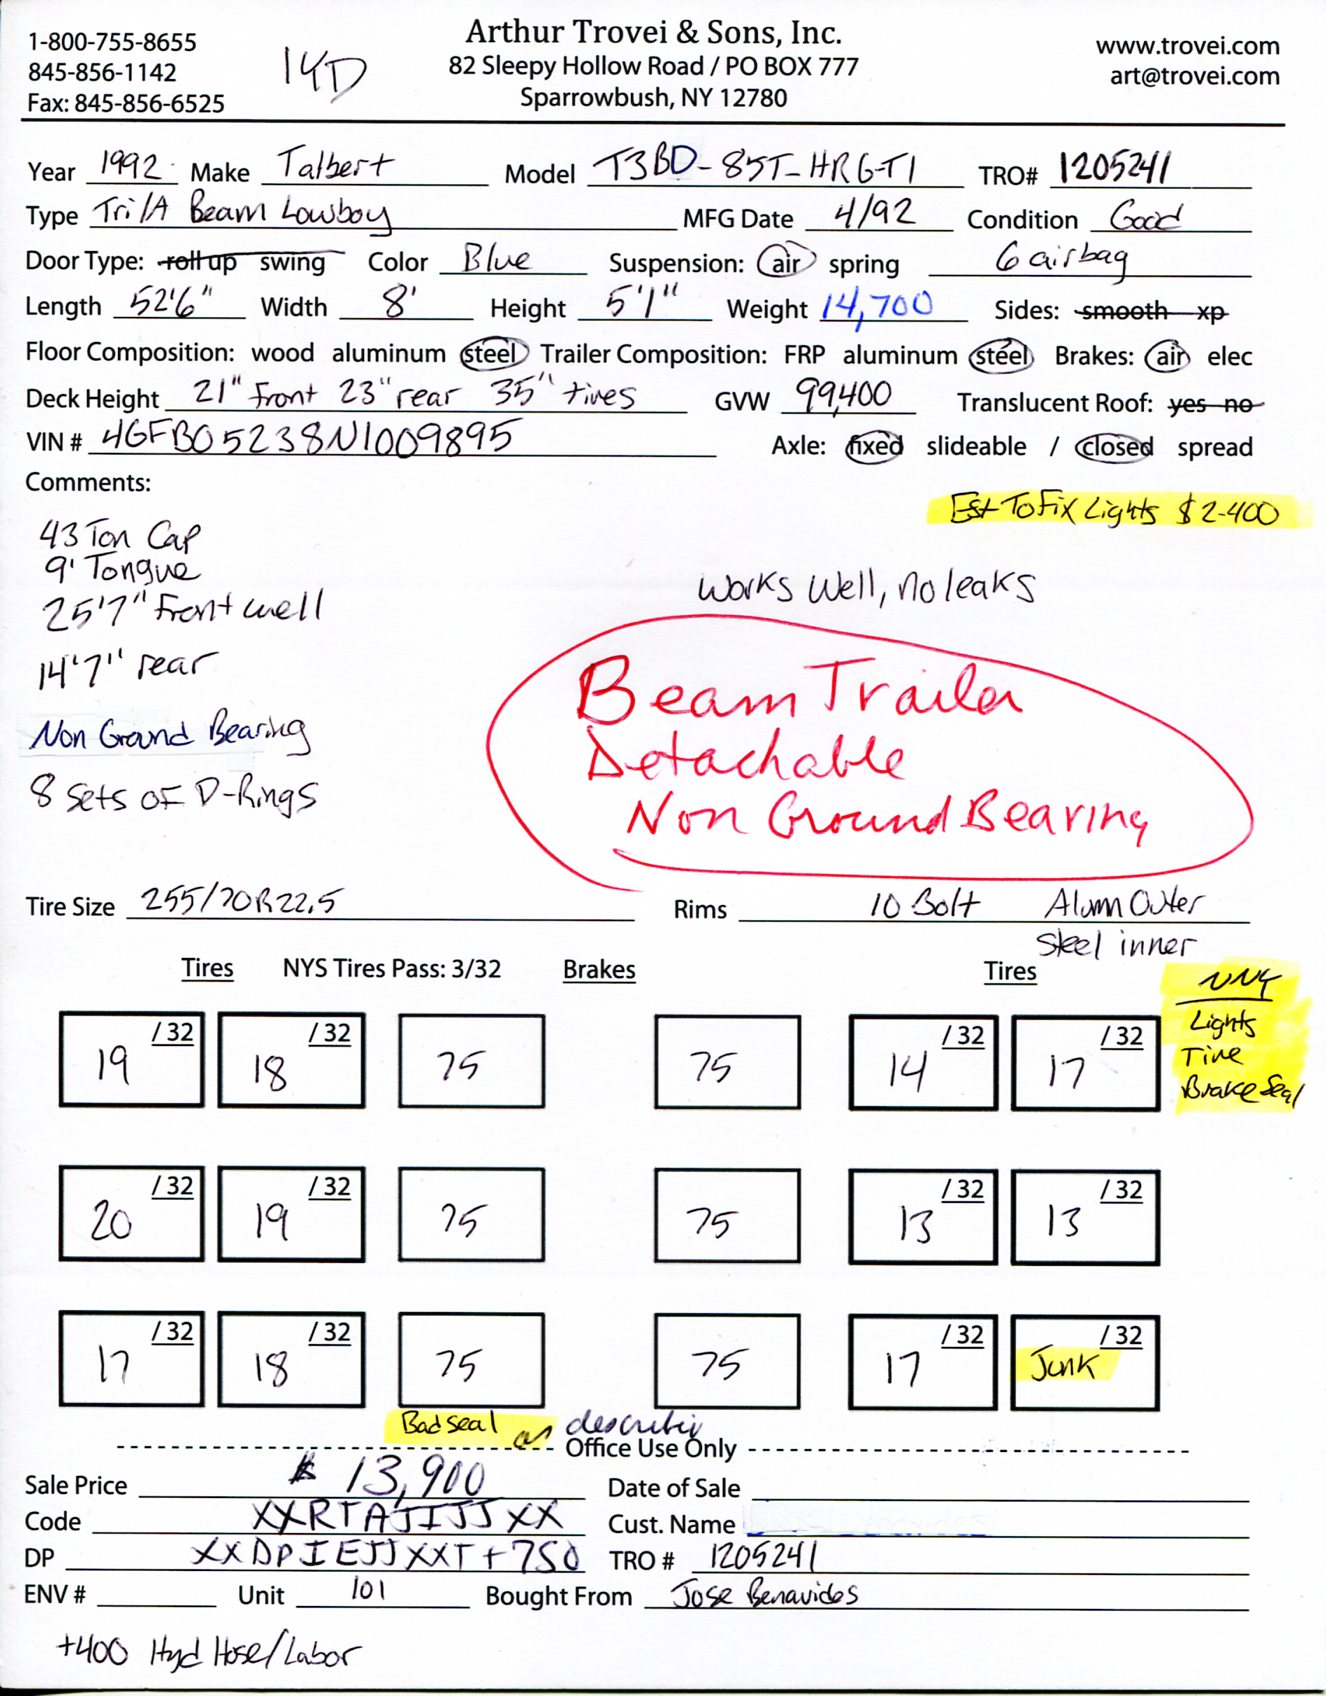 1-800-755-8655
845-856-1142
Fax: 845-856-6525
14D
Arthur Trovei & Sons, Inc.
82 Sleepy Hollow Road / PO BOX 777
Sparrowbush, NY 12780
www.trovei.com
art@trovei.com
Year 1992 Make Talbert Model T3BD-85T-HRG-T1 TRO# 1205241
Type Tri/A Beam Lowboy MFG Date 4/92 Condition Good
Door Type: roll up swing Color Blue Suspension: air spring 6 airbag
Length 52'6" Width 8' Height 5'1" Weight 14,700 Sides: smooth xp
Floor Composition: wood aluminum steel Trailer Composition: FRP aluminum steel Brakes: air elec
Deck Height 21" front 23" rear 35" tires GVW 99,400 Translucent Roof: yes no
VIN # 4GFB05238N1009895 Axle: fixed slideable / closed spread
Comments:
Est To Fix Lights $2-400
43 Ton Cap
9' Tongue
25'7" Front well
14'7" rear
Non Ground Bearing
8 Sets OF D-Rings
Works Well, no leaks
Beam Trailer
Detachable
Non Ground Bearing
Tire Size 255/70R22.5 Rims 10 Bolt Alumn Outer
Steel inner
Tires NYS Tires Pass: 3/32 Brakes Tires
NNY
Lights
Tire
Brake Seal
19 /32 18 /32 75 75 14 /32 17 /32
20 /32 19 /32 75 75 13 /32 13 /32
17 /32 18 /32 75 75 17 /32 Junk /32
Bad seal as
Office Use Only
Sale Price $ 13,900 Date of Sale
Code XXRTAJIJJXX Cust. Name
DP XXDPIEJJXXT+750 TRO # 1205241
ENV # Unit 101 Bought From Jose Benavides
+400 Hyd Hose/Labor